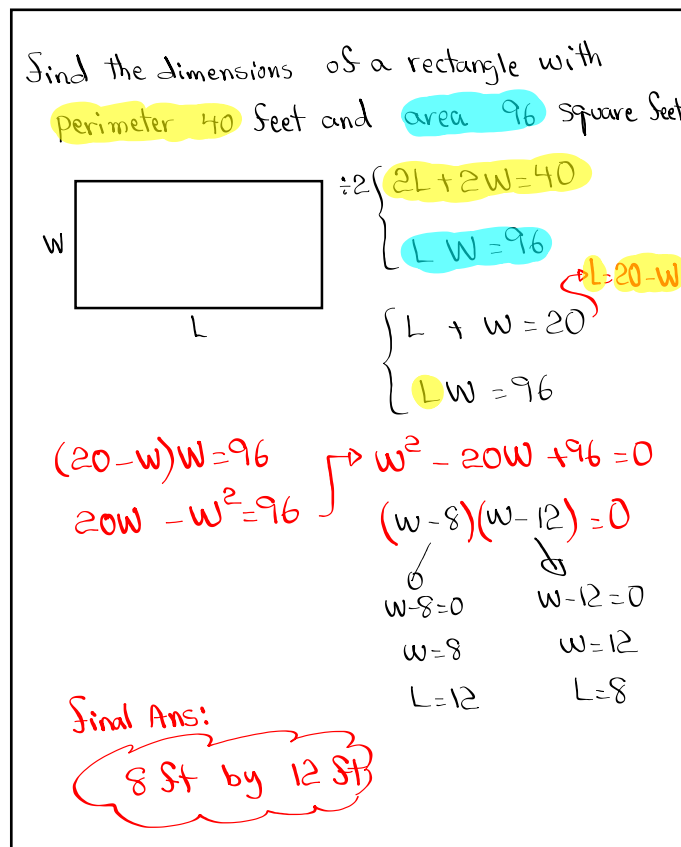 Find the dimensions of a rectangle with
perimeter 40 feet and area 96 square feet
÷2 { 2L + 2W = 40
L W = 96
L = 20 - W
W
L
L + W = 20
L W = 96
(20 - W)W = 96
20W - W² = 96
W² - 20W + 96 = 0
(W - 8)(W - 12) = 0
W - 8 = 0
W = 8
L = 12
W - 12 = 0
W = 12
L = 8
Final Ans:
8 ft by 12 ft